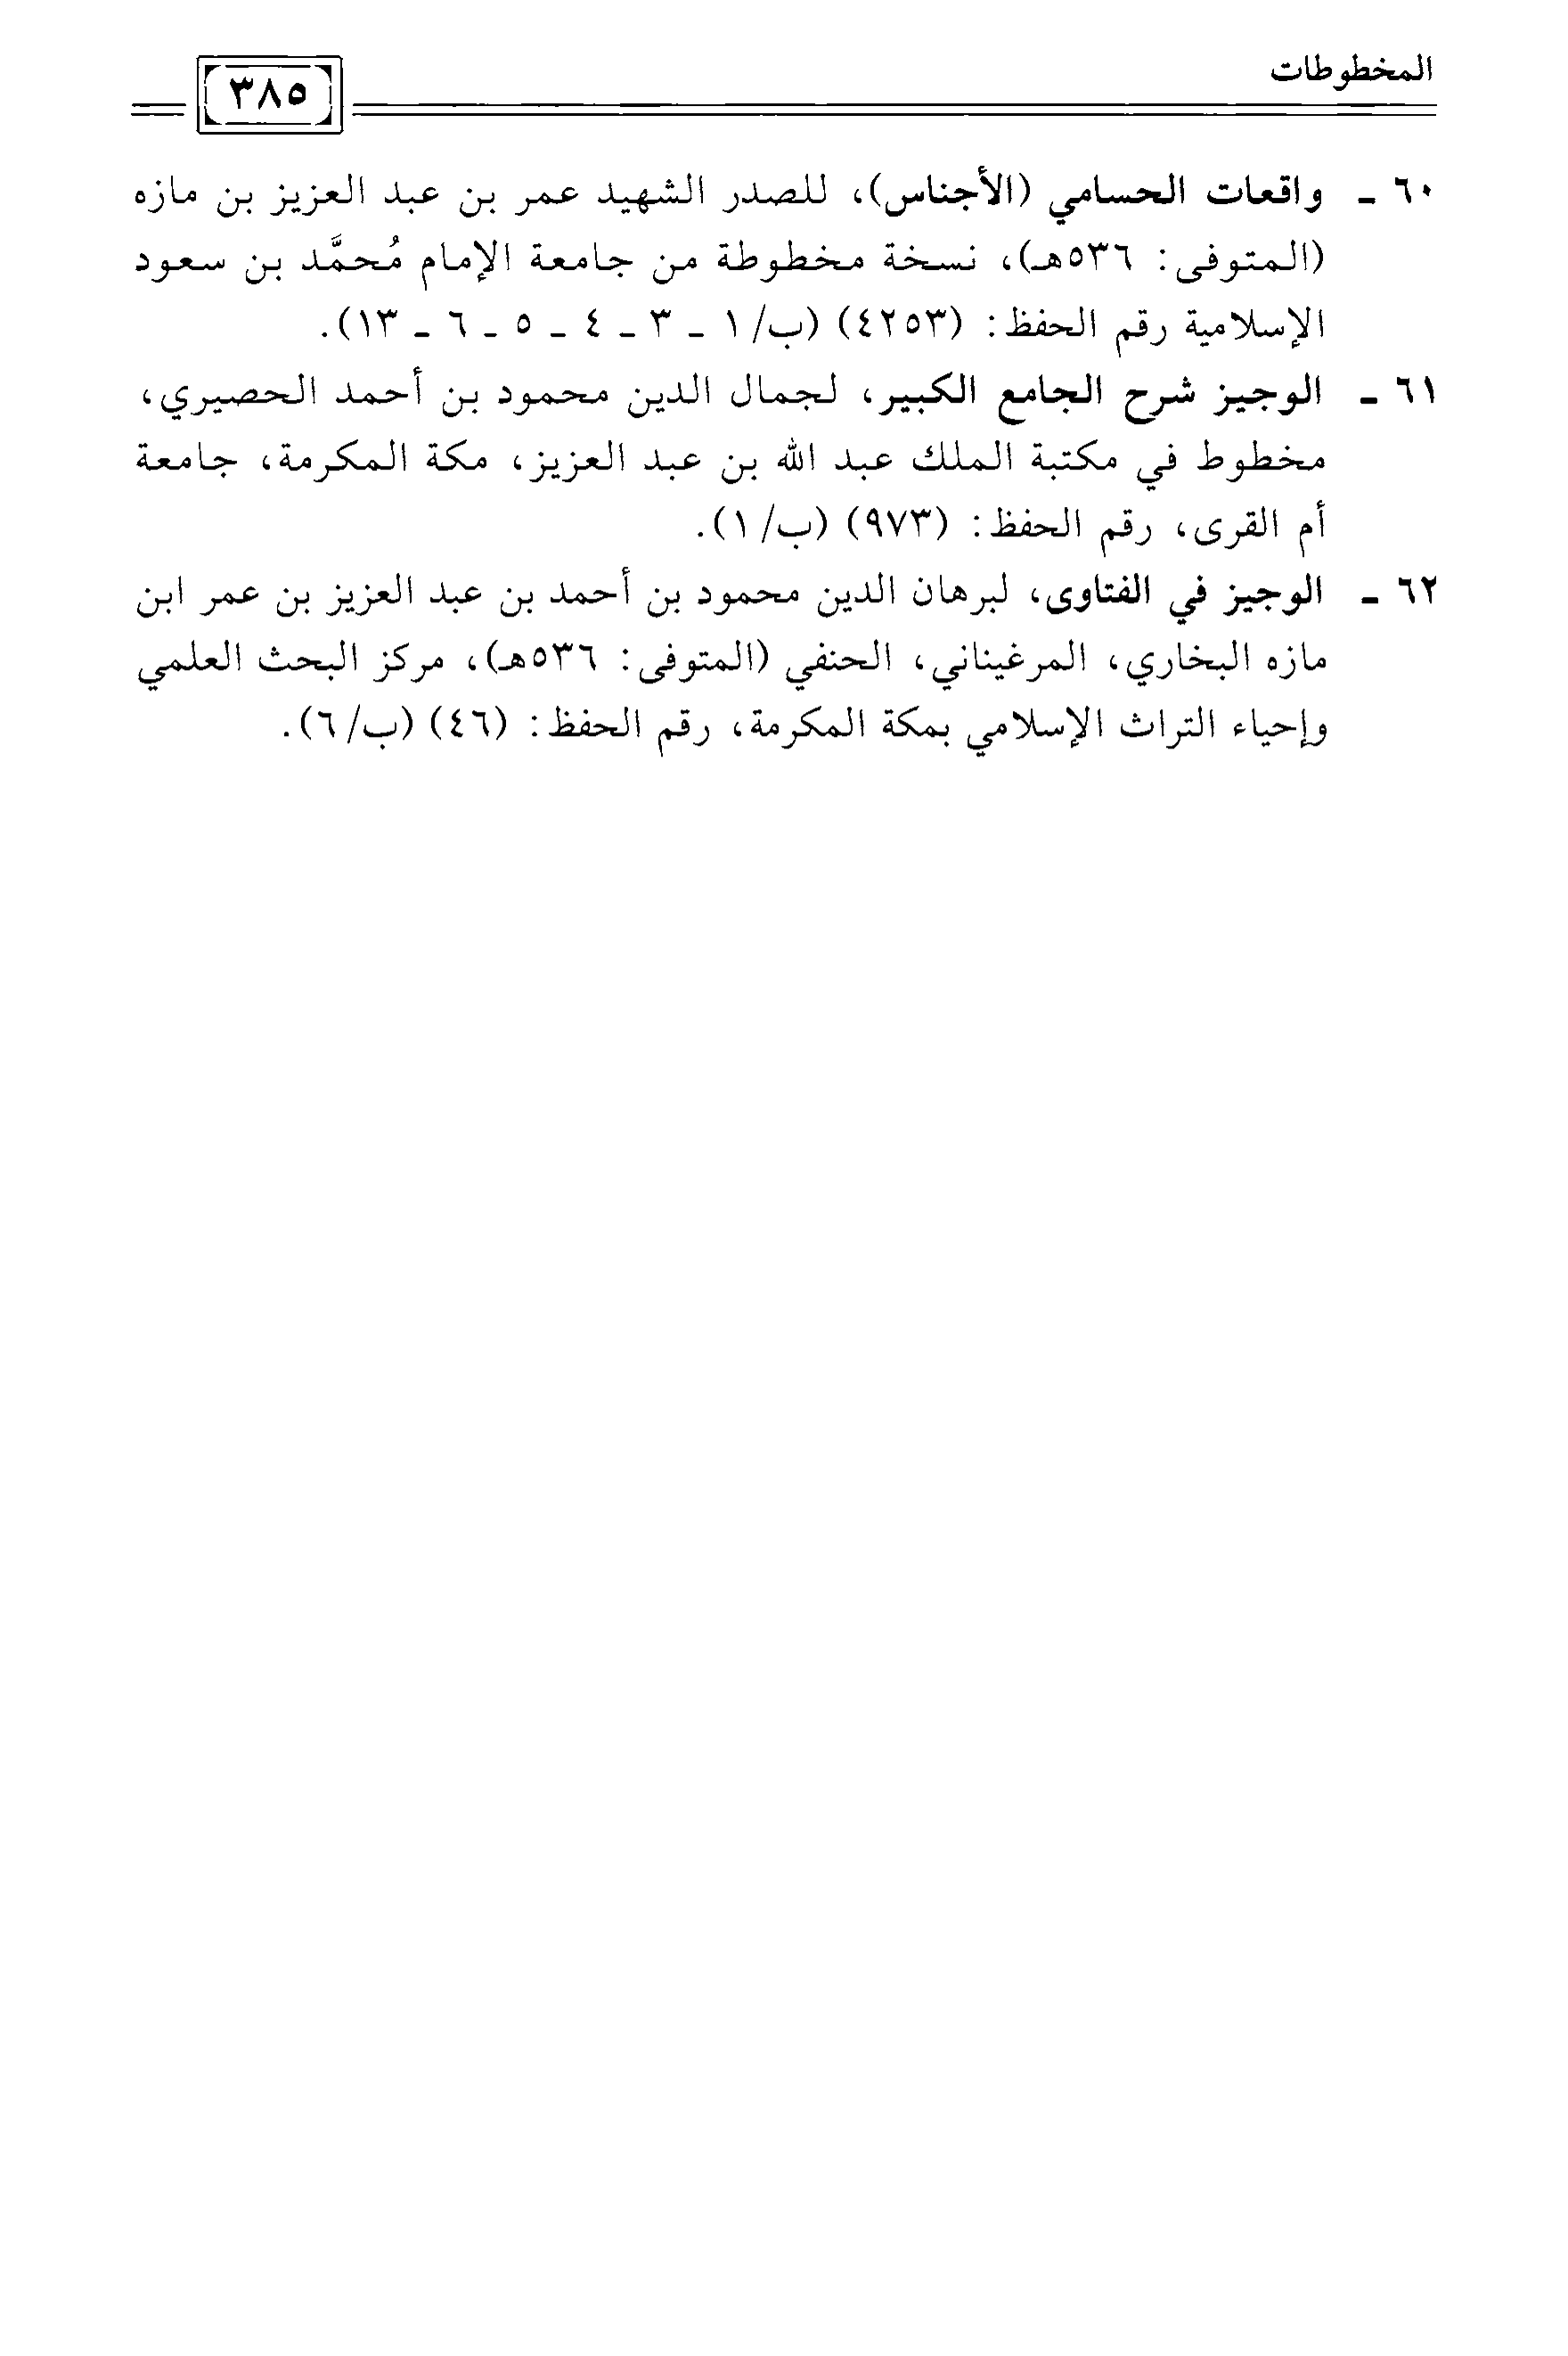 المخطوطات
٣٨٥
٦٠ - واقعات الحسامي (الأجناس)، للصدر الشهيد عمر بن عبد العزيز بن مازه
(المتوفى: ٥٣٦هـ)، نسخة مخطوطة من جامعة الإمام مُحمَّد بن سعود
الإسلامية رقم الحفظ: (٤٢٥٣) (ب/ ١ - ٣ - ٤ - ٥ - ٦ - ١٣).
٦١ - الوجيز شرح الجامع الكبير، لجمال الدين محمود بن أحمد الحصيري،
مخطوط في مكتبة الملك عبد الله بن عبد العزيز، مكة المكرمة، جامعة
أم القرى، رقم الحفظ: (٩٧٣) (ب/ ١).
٦٢ - الوجيز في الفتاوى، لبرهان الدين محمود بن أحمد بن عبد العزيز بن عمر ابن
مازه البخاري، المرغيناني، الحنفي (المتوفى: ٥٣٦هـ)، مركز البحث العلمي
وإحياء التراث الإسلامي بمكة المكرمة، رقم الحفظ: (٤٦) (ب/ ٦).